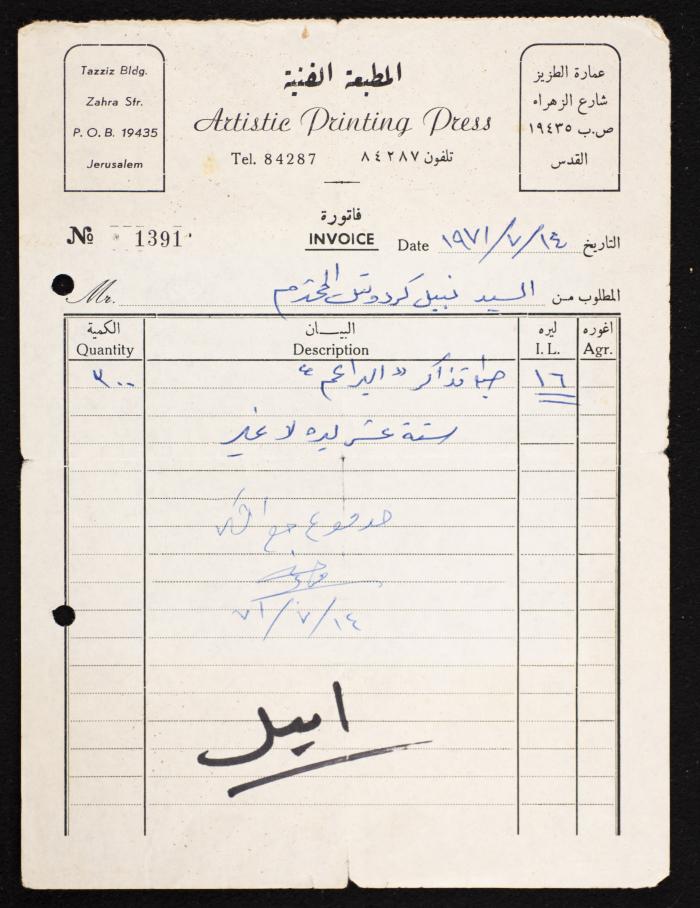 المطبعة الفنية
Artistic Printing Press
Tel. 84287 تلفون ٨٤٢٨٧
Tazziz Bldg.
Zahra Str.
P. O. B. 19435
Jerusalem
عمارة الطزيز
شارع الزهراء
ص.ب ١٩٤٣٥
القدس
فاتورة
INVOICE
№ 1391
Date ١٩٧١/٧/١٤ التاريخ
Mr. السيد نبيل المحترم المطلوب من
الكمية البيـــان ليره اغوره
Quantity Description I. L. Agr.
٣٠٠ تذاكر «البراعم» ١٦
ستة عشر ليره لا غير
مدفوع مع الشكر
٧١/٧/١٤
ايبل